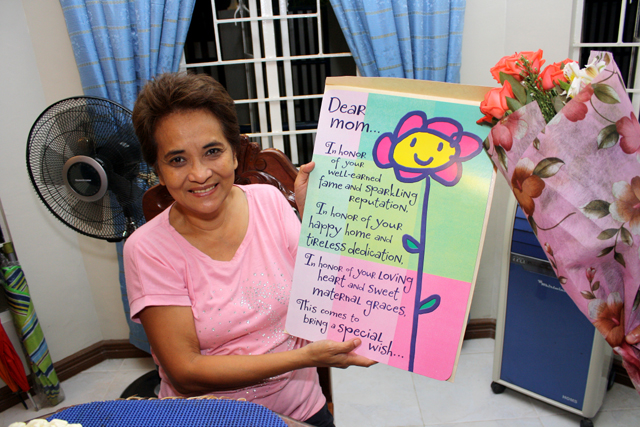 Dear
mom...
In honor
of your
well-earned
fame and sparkling
reputation.
In honor of your
happy home and
tireless dedication.
In honor of your loving
heart and sweet
maternal graces,
This comes to
bring a special
wish...